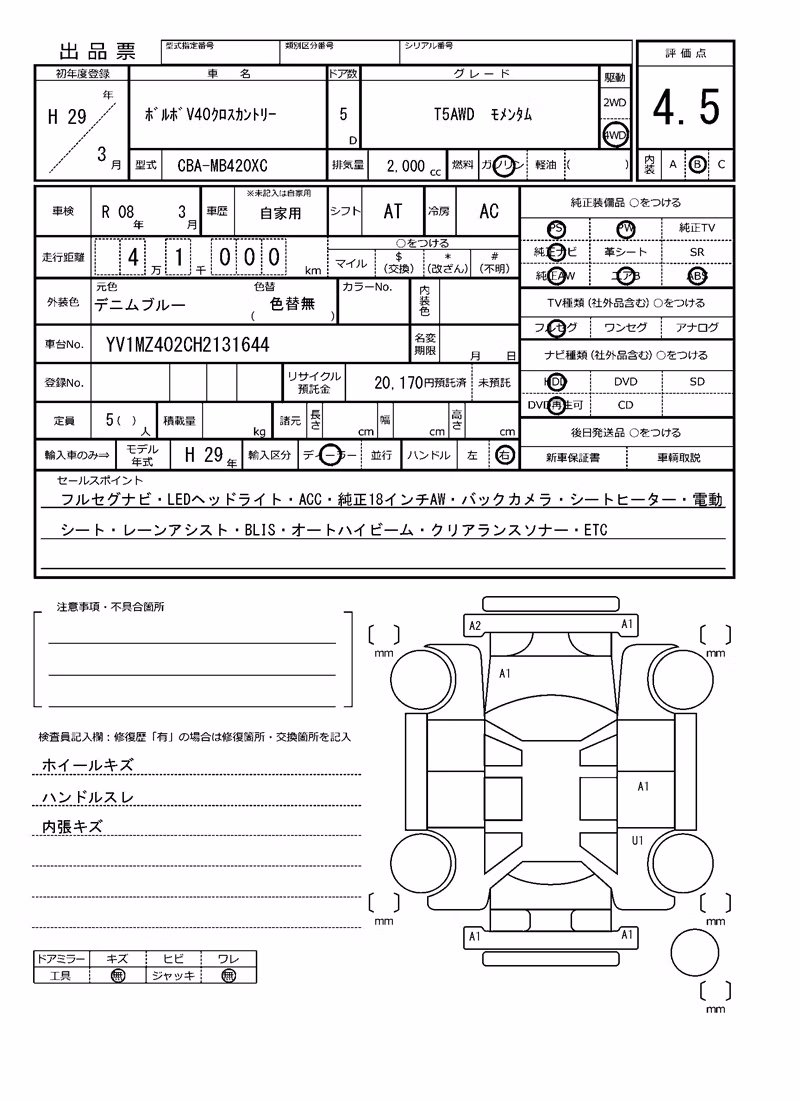 出品票
型式指定番号 類別区分番号 シリアル番号
初年度登録 車名 ドア数 グレード 駆動 評価点
H 29 年 3 月 ﾎﾞﾙﾎﾞV40ｸﾛｽｶﾝﾄﾘｰ 5 D T5AWD ﾓﾒﾝﾀﾑ 2WD 4WD 4.5
型式 CBA-MB420XC 排気量 2,000 cc 燃料 ガソリン 軽油 ( ) 内装 A B C
車検 R 08 年 3 月 車歴 ※未記入は自家用 自家用 シフト AT 冷房 AC
走行距離 4 万 1 千 0 0 0 km ○をつける マイル $ (交換) * (改ざん) # (不明)
外装色 元色 デニムブルー 色替 ( 色替無 ) カラーNo. 内装色
車台No. YV1MZ402CH2131644 名変期限 月 日
登録No. リサイクル預託金 20,170円預託済 未預託
定員 5( ) 人 積載量 kg 諸元 長さ cm 幅 cm 高さ cm
輸入車のみ⇒ モデル年式 H 29 年 輸入区分 ディーラー 並行 ハンドル 左 右
純正装備品 ○をつける
PS PW 純正TV
純正ナビ 革シート SR
純正AW エアB ABS
TV種類(社外品含む) ○をつける
フルセグ ワンセグ アナログ
ナビ種類(社外品含む) ○をつける
HDD DVD SD
DVD再生可 CD
後日発送品 ○をつける
新車保証書 車輌取説
セールスポイント
フルセグナビ・LEDヘッドライト・ACC・純正18インチAW・バックカメラ・シートヒーター・電動
シート・レーンアシスト・BLIS・オートハイビーム・クリアランスソナー・ETC
注意事項・不具合箇所
検査員記入欄：修復歴「有」の場合は修復箇所・交換箇所を記入
ホイールキズ
ハンドルスレ
内張キズ
ドアミラー キズ ヒビ ワレ
工具 無 ジャッキ 無
A2 A1
mm mm
A1
A1
U1
mm mm
A1 A1
mm